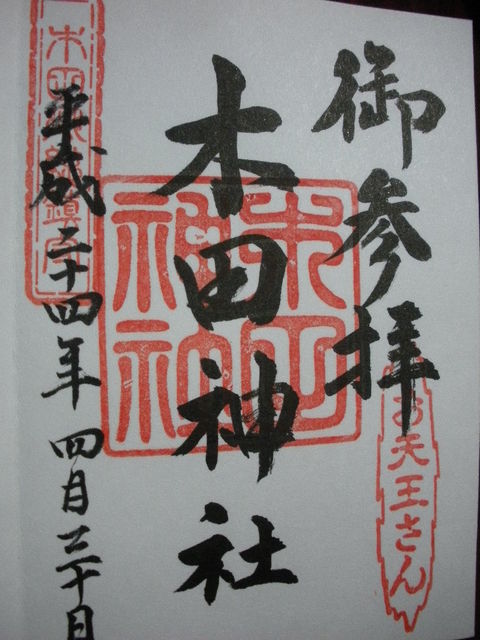 御参拝
お天王さん
木田神社
木田
神社
平成二十四年 四月三十日